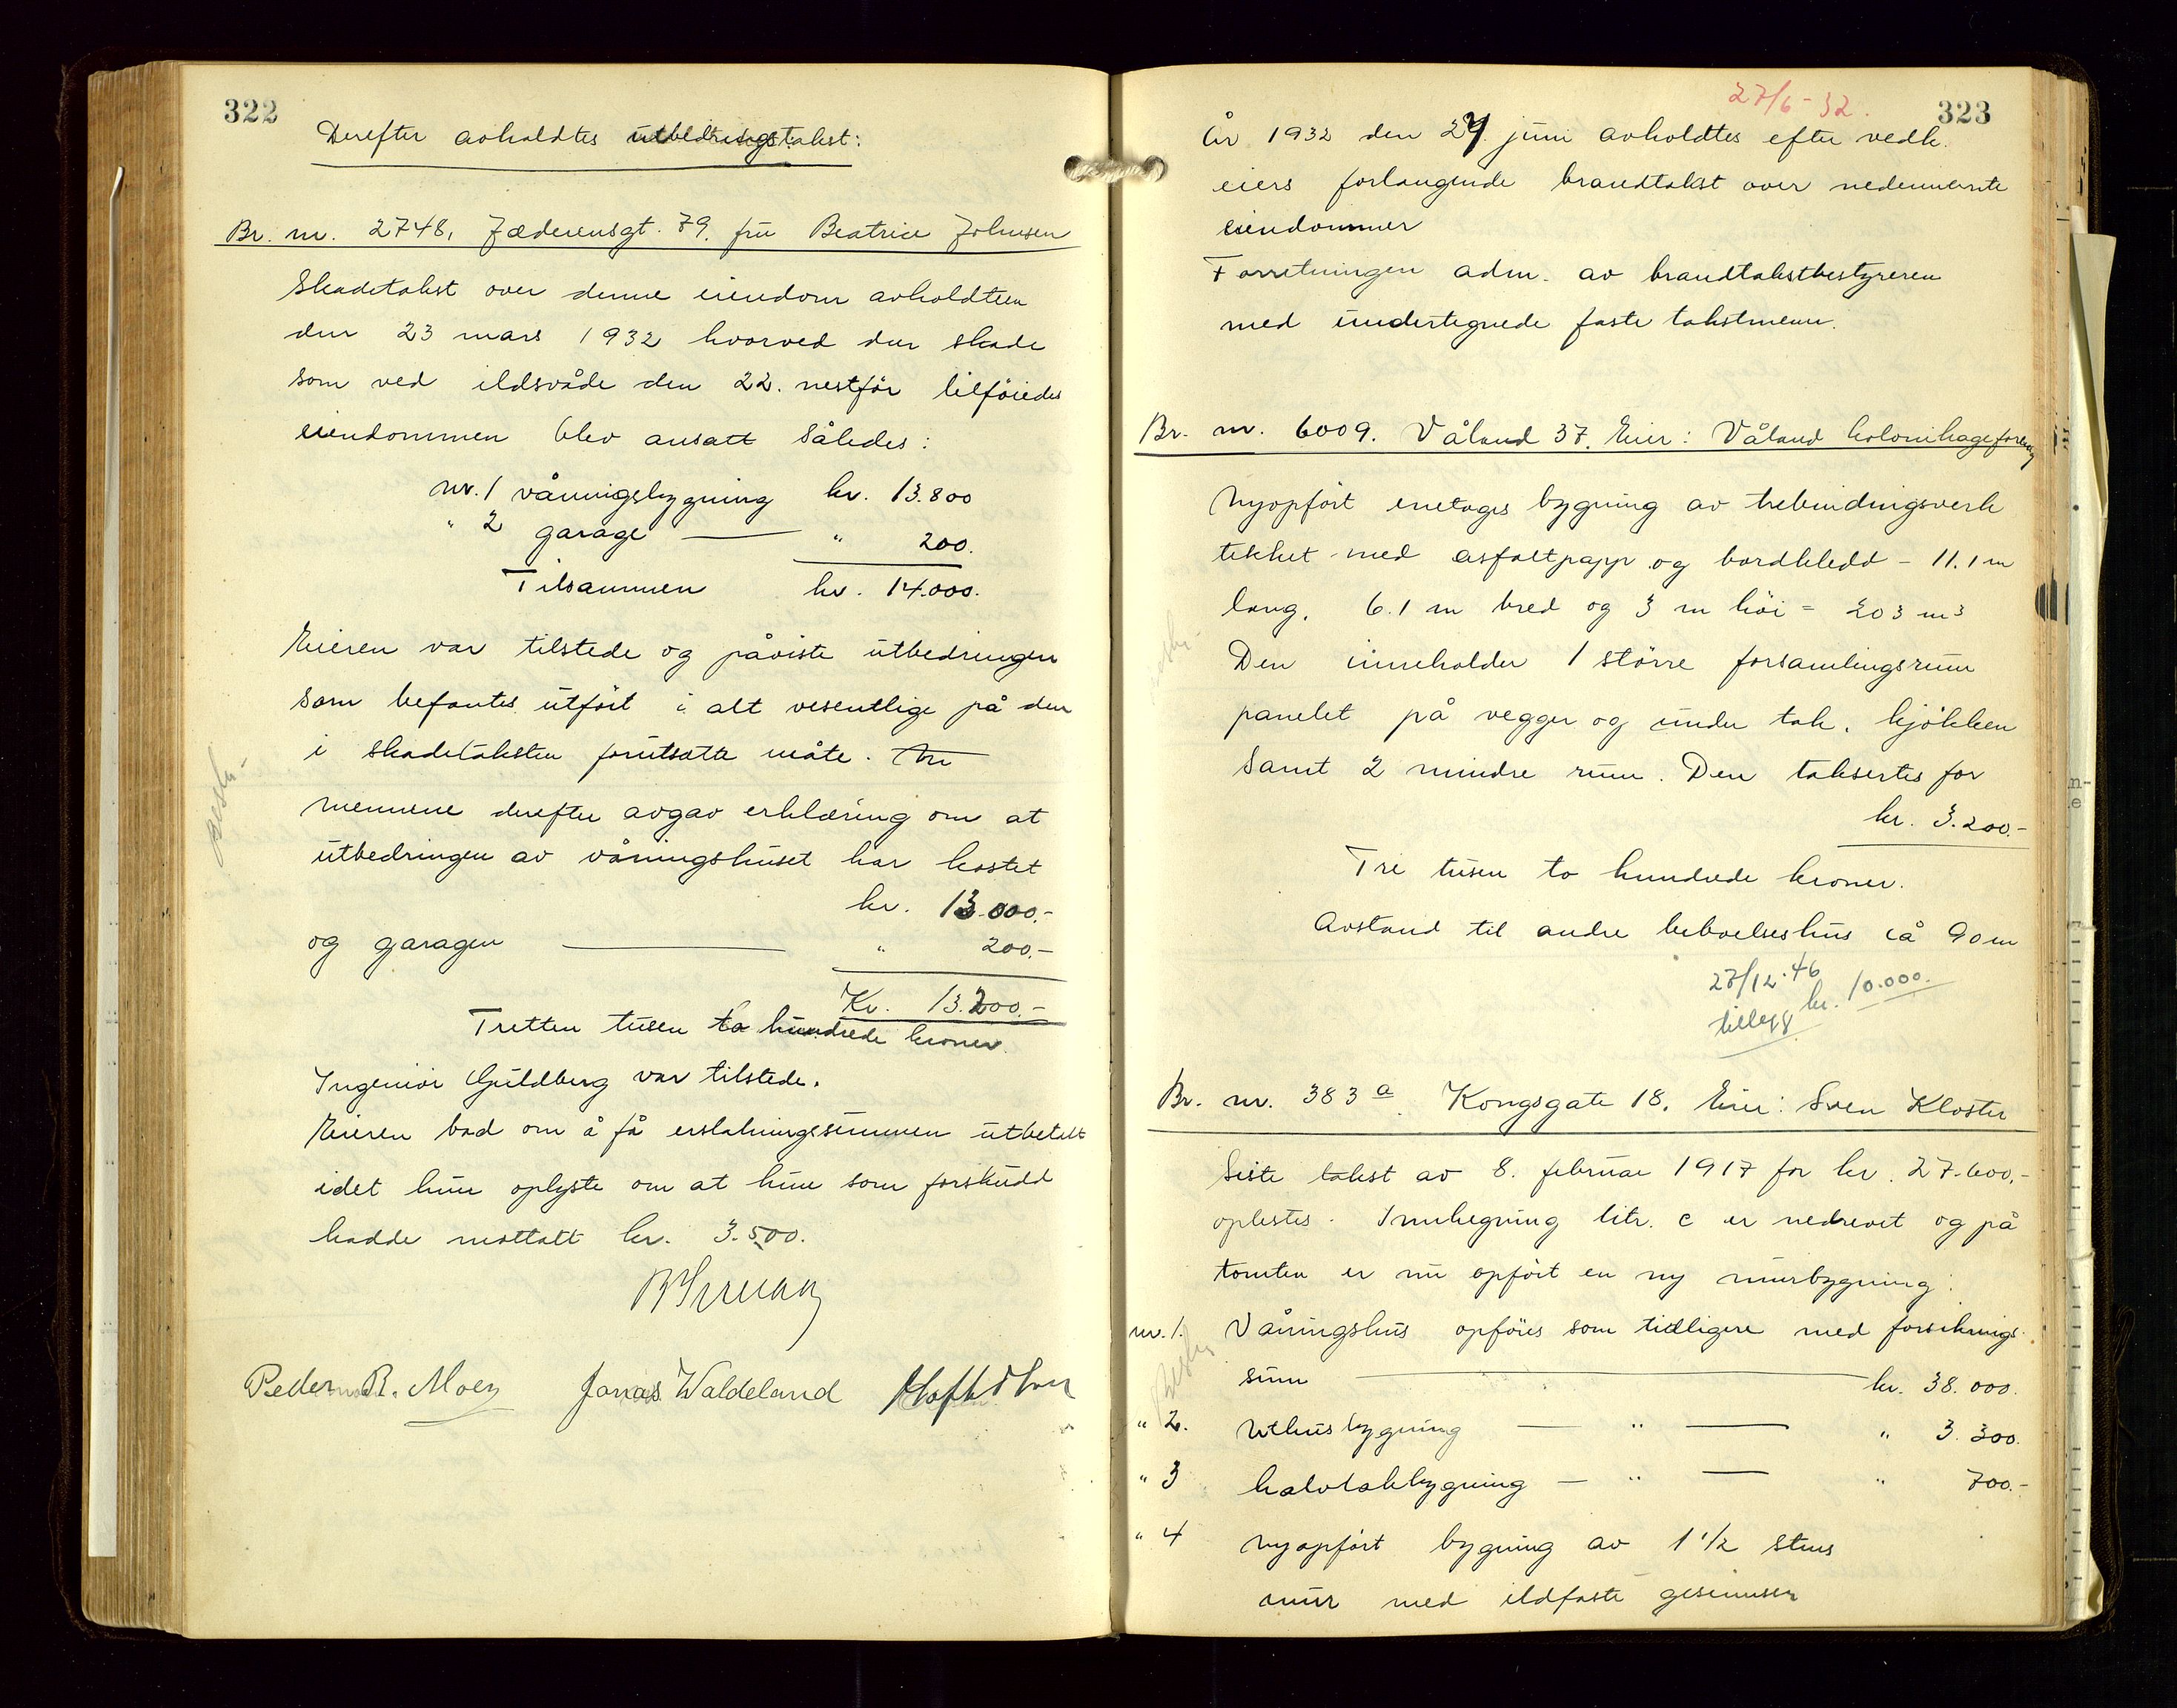 322
Derefter avholdtes utbedringstakst:
Br. nr. 2748, Jæderensgt. 79. fru Beatrice Johnsen
Skadetakst over denne eiendom avholdtes
den 23 mars 1932 hvorved den skade
som ved ildsvåde den 22. nestfør tilføiedes
eiendommen blev ansatt således:
nr. 1 våningsbygning kr. 13.800
" 2 garage — " 200.
Tilsammen kr. 14.000.
Eieren var tilstede og påviste utbedringen
som befantes utført i alt vesentlige på den
i skadetaksten forutsatte måte.
mennene derefter avgav erklæring om at
utbedringen av våningshuset har kostet
kr. 13.000.-
og garagen — " 200.-
Kr. 13.200.-
Tretten tusen to hundrede kroner.
Ingeniør Guldberg var tilstede.
Eieren bad om å få erstatningssummen utbetalt
idet hun oplyste om at hun som forskudd
hadde mottatt kr. 3.500.
Peder R. Moen Jonas Waldeland
27/6-32.
323
År 1932 den 27. juni avholdtes efter vedk.
eiers forlangende brandtakst over nedennevnte
eiendommer
Forretningen adm. av brandtakstbestyreren
med undertegnede faste takstmenn.
Br. nr. 6009. Våland 37. Eier: Våland kolonihageforening
Nyopført enetages bygning av trebindingsverk
tekket med asfaltpapp og bordkledd - 11.1 m
lang, 6.1 m bred og 3 m høi = 203 m³
Den inneholder 1 større forsamlingsrum
panelet på vegger og under tak, kjøkken
samt 2 mindre rum. Den takseres for
kr. 3.200.-
Tre tusen to hundrede kroner.
Avstand til andre beboelseshus ca 90 m
27/12.46
tillegg kr. 10.000.
Br. nr. 383 a. Kongsgate 18. Eier: Sven Kloster
Siste takst av 8. februar 1917 for kr. 27.600.-
oplestes. Innbygning litr. c er nedrevet og på
tomten er nu opført en ny murbygning.
nr. 1. Våningshus opføres som tidligere med forsikrings-
sum — kr. 38.000.
" 2. Uthusbygning — " — " 3.300.
" 3 halvtakbygning — " — " 700.-
" 4 nyopført bygning av 1 1/2 stens
mur med ildfaste gesimser